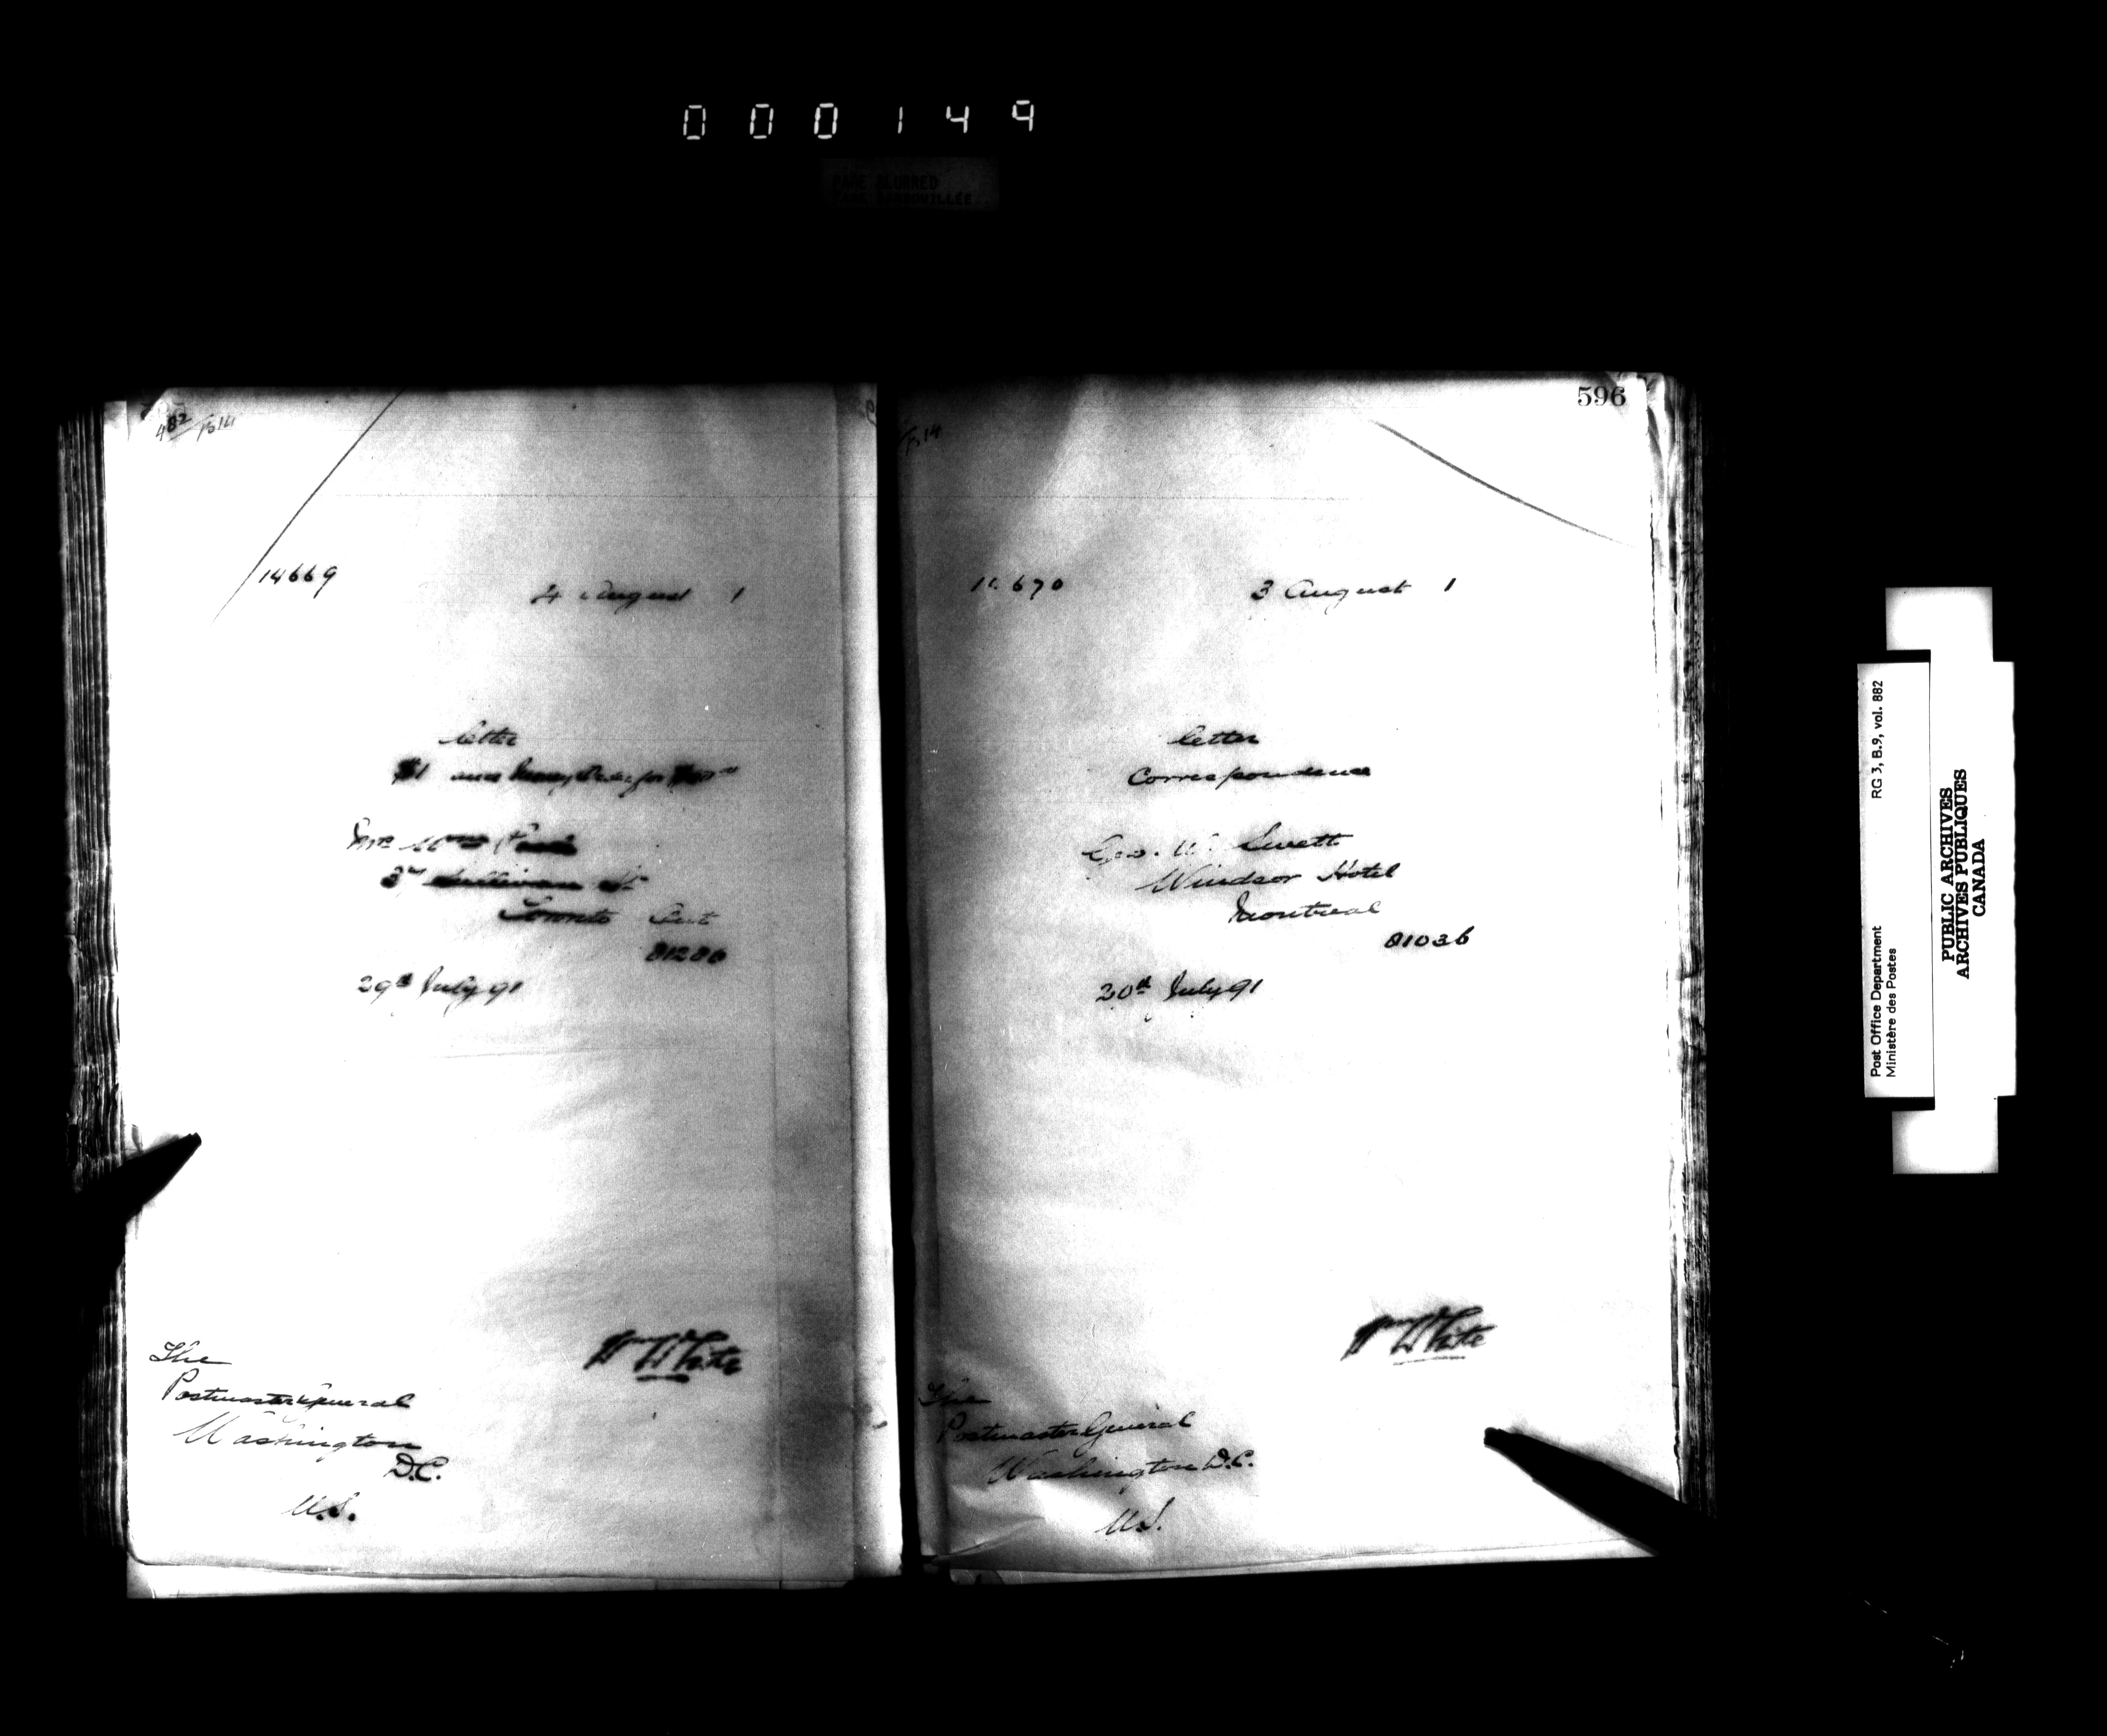 000149
PAGE BLURRED
596
14669
4 August 1
letter
$1 and Money Order for
Mrs
3 Sullivan St
Toronto Ont
81286
29th July 91
Wm White
The
Postmaster General
Washington
D.C.
U.S.
B14
670
3 August 1
letter
Correspondence
Geo. W. Swett
Windsor Hotel
Montreal
81036
30th July 91
Wm White
The
Postmaster General
Washington D.C.
U.S.
Post Office Department
Ministère des Postes
RG 3, B.9, vol. 882
PUBLIC ARCHIVES
ARCHIVES PUBLIQUES
CANADA